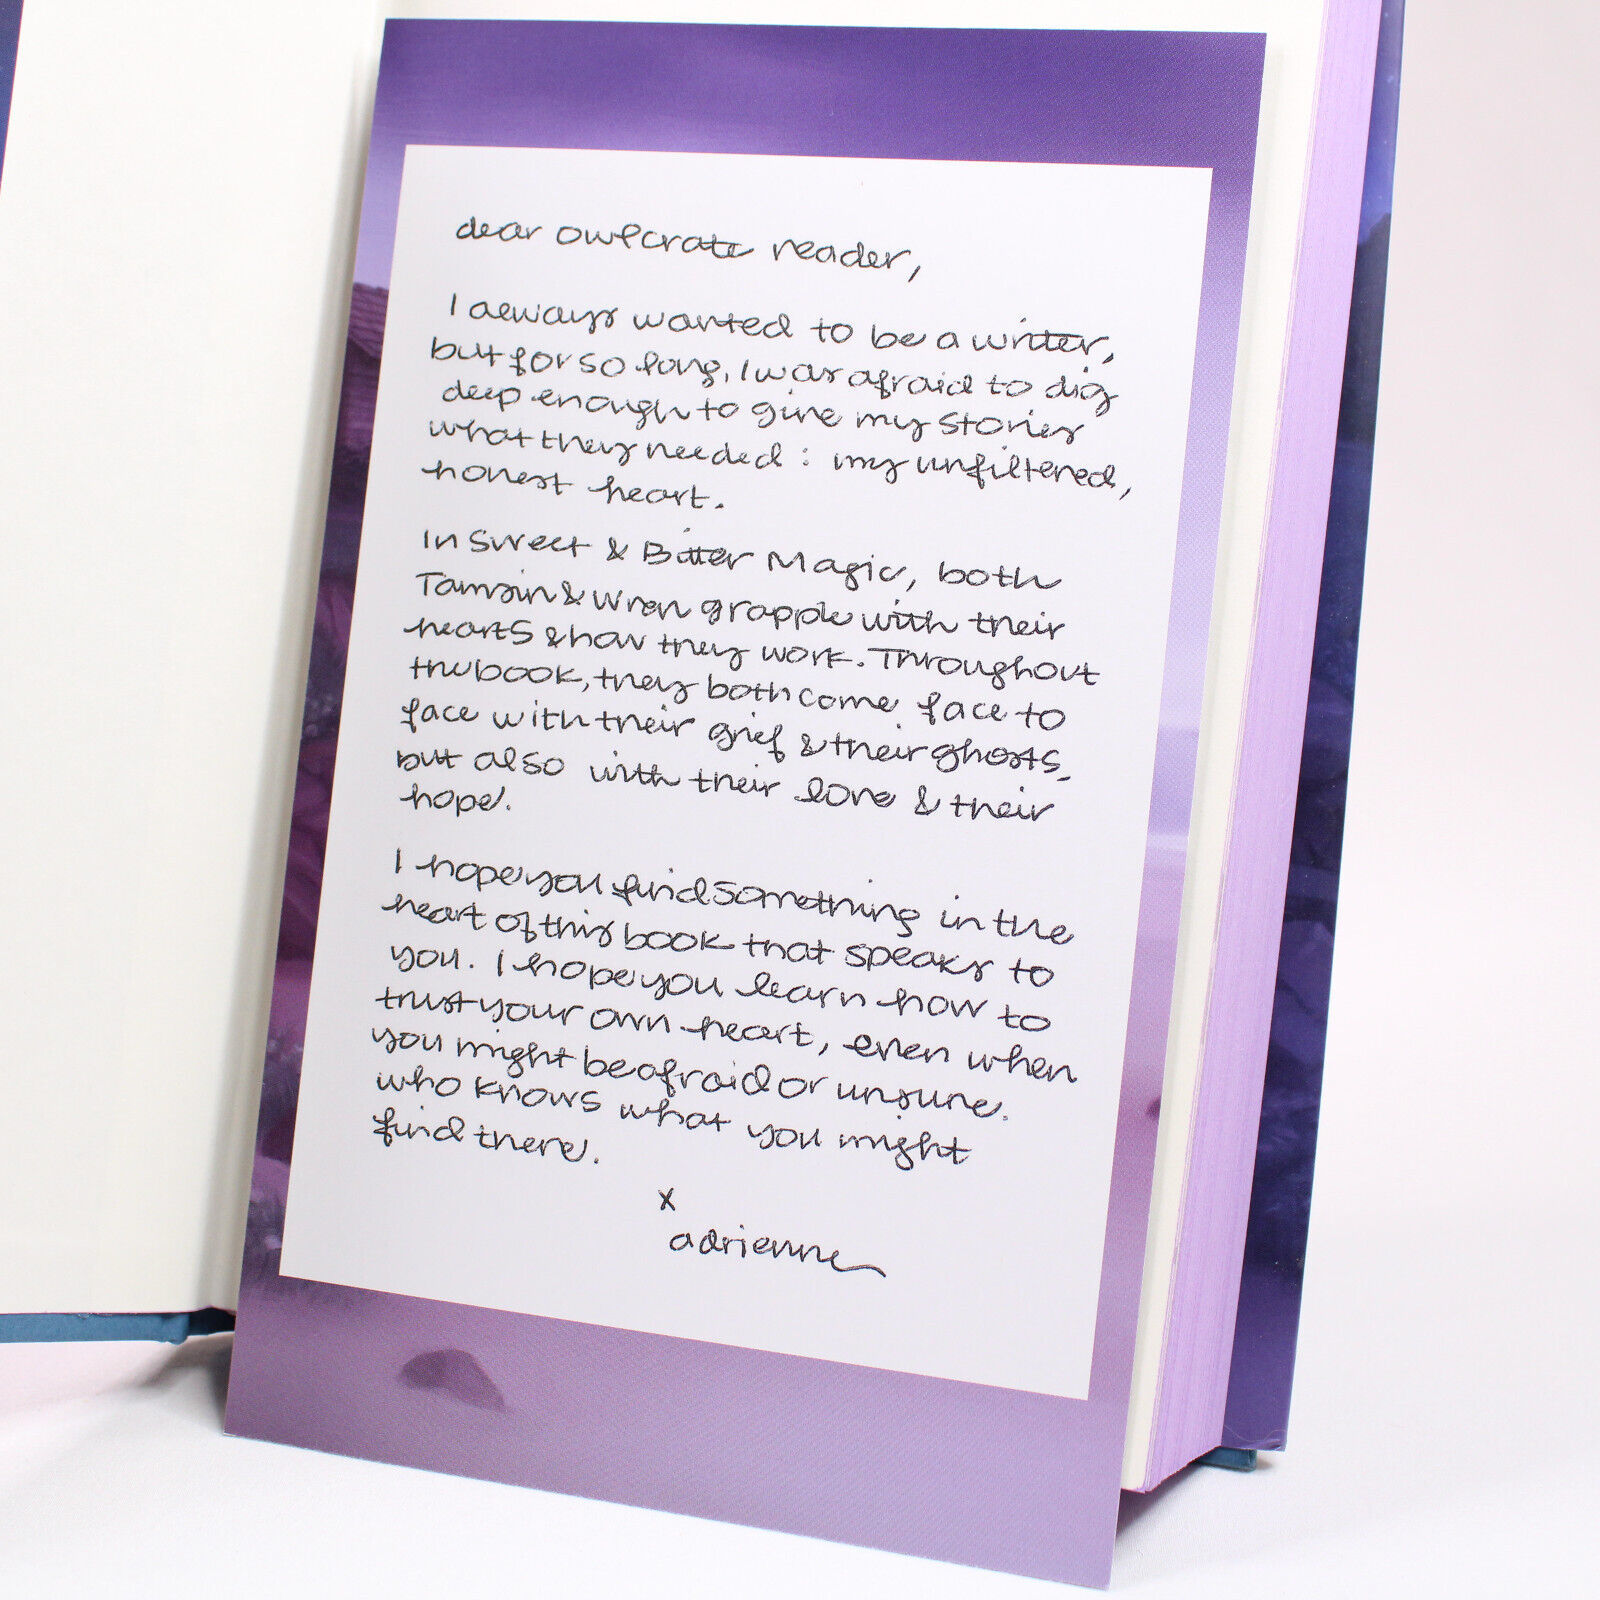 dear owlcrate reader,
I always wanted to be a writer,
but for so long, I was afraid to dig
deep enough to give my stories
what they needed: my unfiltered,
honest heart.
In Sweet & Bitter Magic, both
Tamsin & Wren grapple with their
hearts & how they work. Throughout
the book, they both come face to
face with their grief & their ghosts,
but also with their love & their
hope.
I hope you find something in the
heart of this book that speaks to
you. I hope you learn how to
trust your own heart, even when
you might be afraid or unsure.
who knows what you might
find there.
x
adrienne